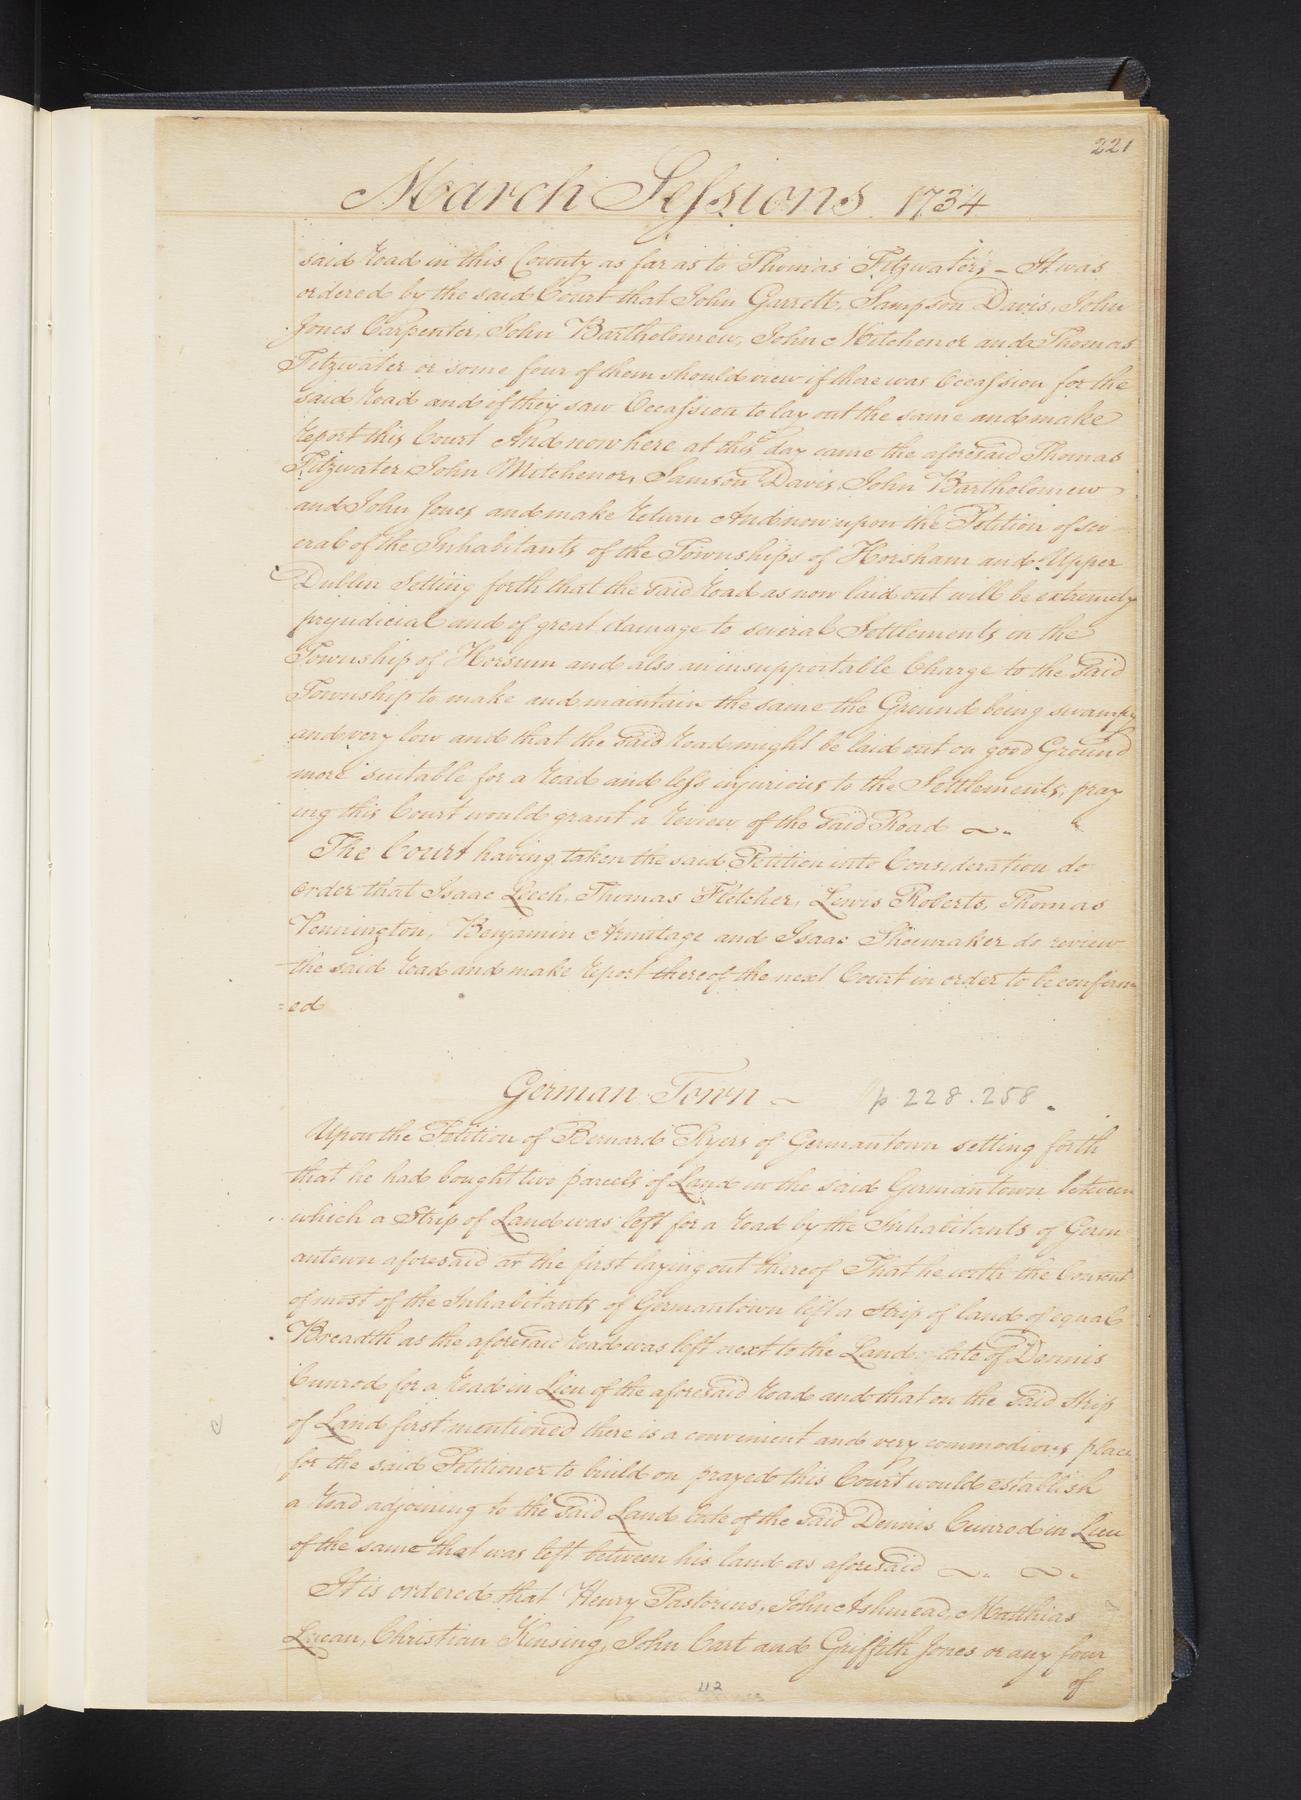 221
March Sessions 1734
said Road in this County as far as to Thomas Fitzwaters — It was
ordered by the said Court that John Garrett, Sampson Davis, John
Jones Carpenter, John Bartholomew, John Mitchenor and Thomas
Fitzwater or some four of them should view if there was Occassion for the
said Road and if they saw Occassion to lay out the same and make
Report this Court And now here at this day came the aforesaid Thomas
Fitzwater John Mitchenor, Samson Davis John Bartholomew
and John Jones and make Return And now upon the Petition of sev
eral of the Inhabitants of the Townships of Horsham and Upper
Dublin Setting forth that the said Road as now laid out will be extremely
prejudicial and of great damage to several Settlements in the
Township of Horsum and also an insupportable Charge to the said
Township to make and maintain the same the Ground being swampy
and very low and that the said Road might be laid out on good Ground
more suitable for a Road and less injurious to the Settlements, pray
ing this Court would grant a Review of the said Road
The Court having taken the said Petition into Consideration do
order that Isaac Leech, Thomas Fletcher, Lewis Roberts, Thomas
Pennington, Benjamin Armitage and Isaac Shoemaker do review
the said Road and make Report thereof the next Court in order to be confirm
=ed
German Town — p. 228. 258.
Upon the Petition of Bernard Ryers of Germantown setting forth
that he had bought two parcels of Land in the said Germantown between
which a Strip of Land was left for a Road by the Inhabitants of Germ
antown aforesaid at the first laying out thereof That he with the Consent
of most of the Inhabitants of Germantown left a Strip of land of equal
Breadth as the aforesaid Road was left next to the Land late of Dennis
Cunrod for a Road in Lieu of the aforesaid Road and that on the said Strip
of Land first mentioned there is a convenient and very commodious place
for the said Petitioner to build on prayed this Court would establish
a Road adjoining to the said Land late of the said Dennis Cunrod in Lieu
of the same that was left between his land as aforesaid
It is ordered that Henry Pastorius, John Ashmead, Matthias
Lucan, Christian Kinsing, John Cart and Griffith Jones or any four
of
112